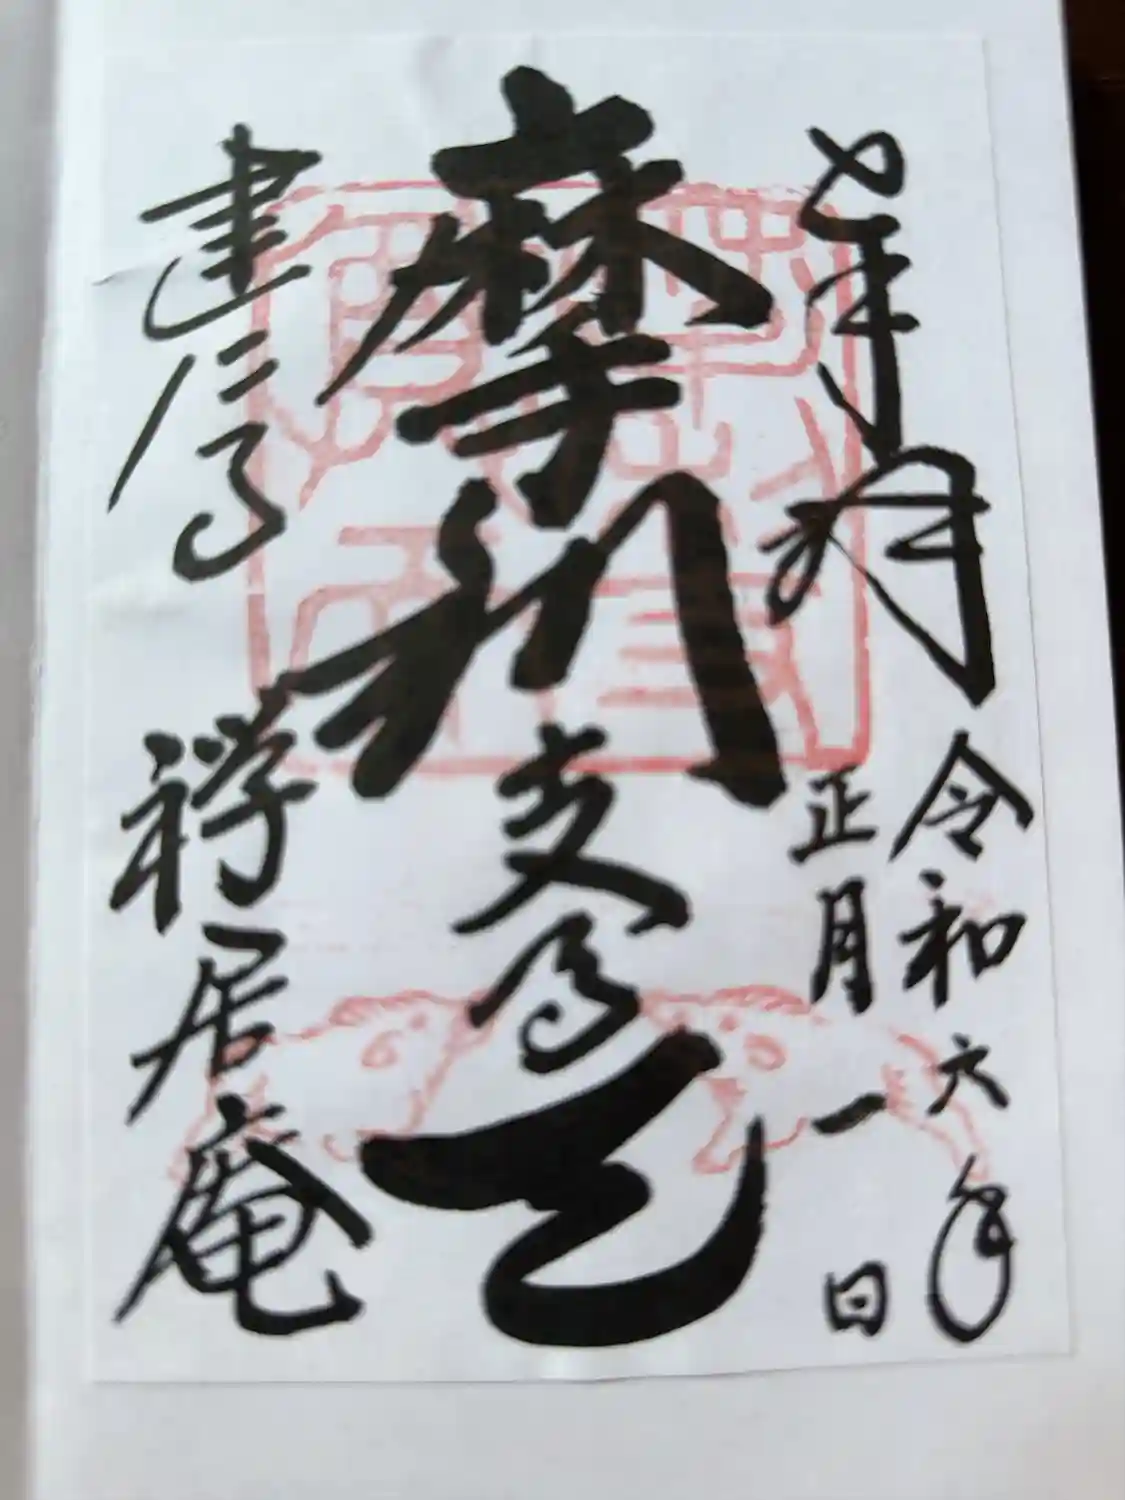 奉拝
令和六年
正月一日
摩利支尊天
建仁寺 禅居庵